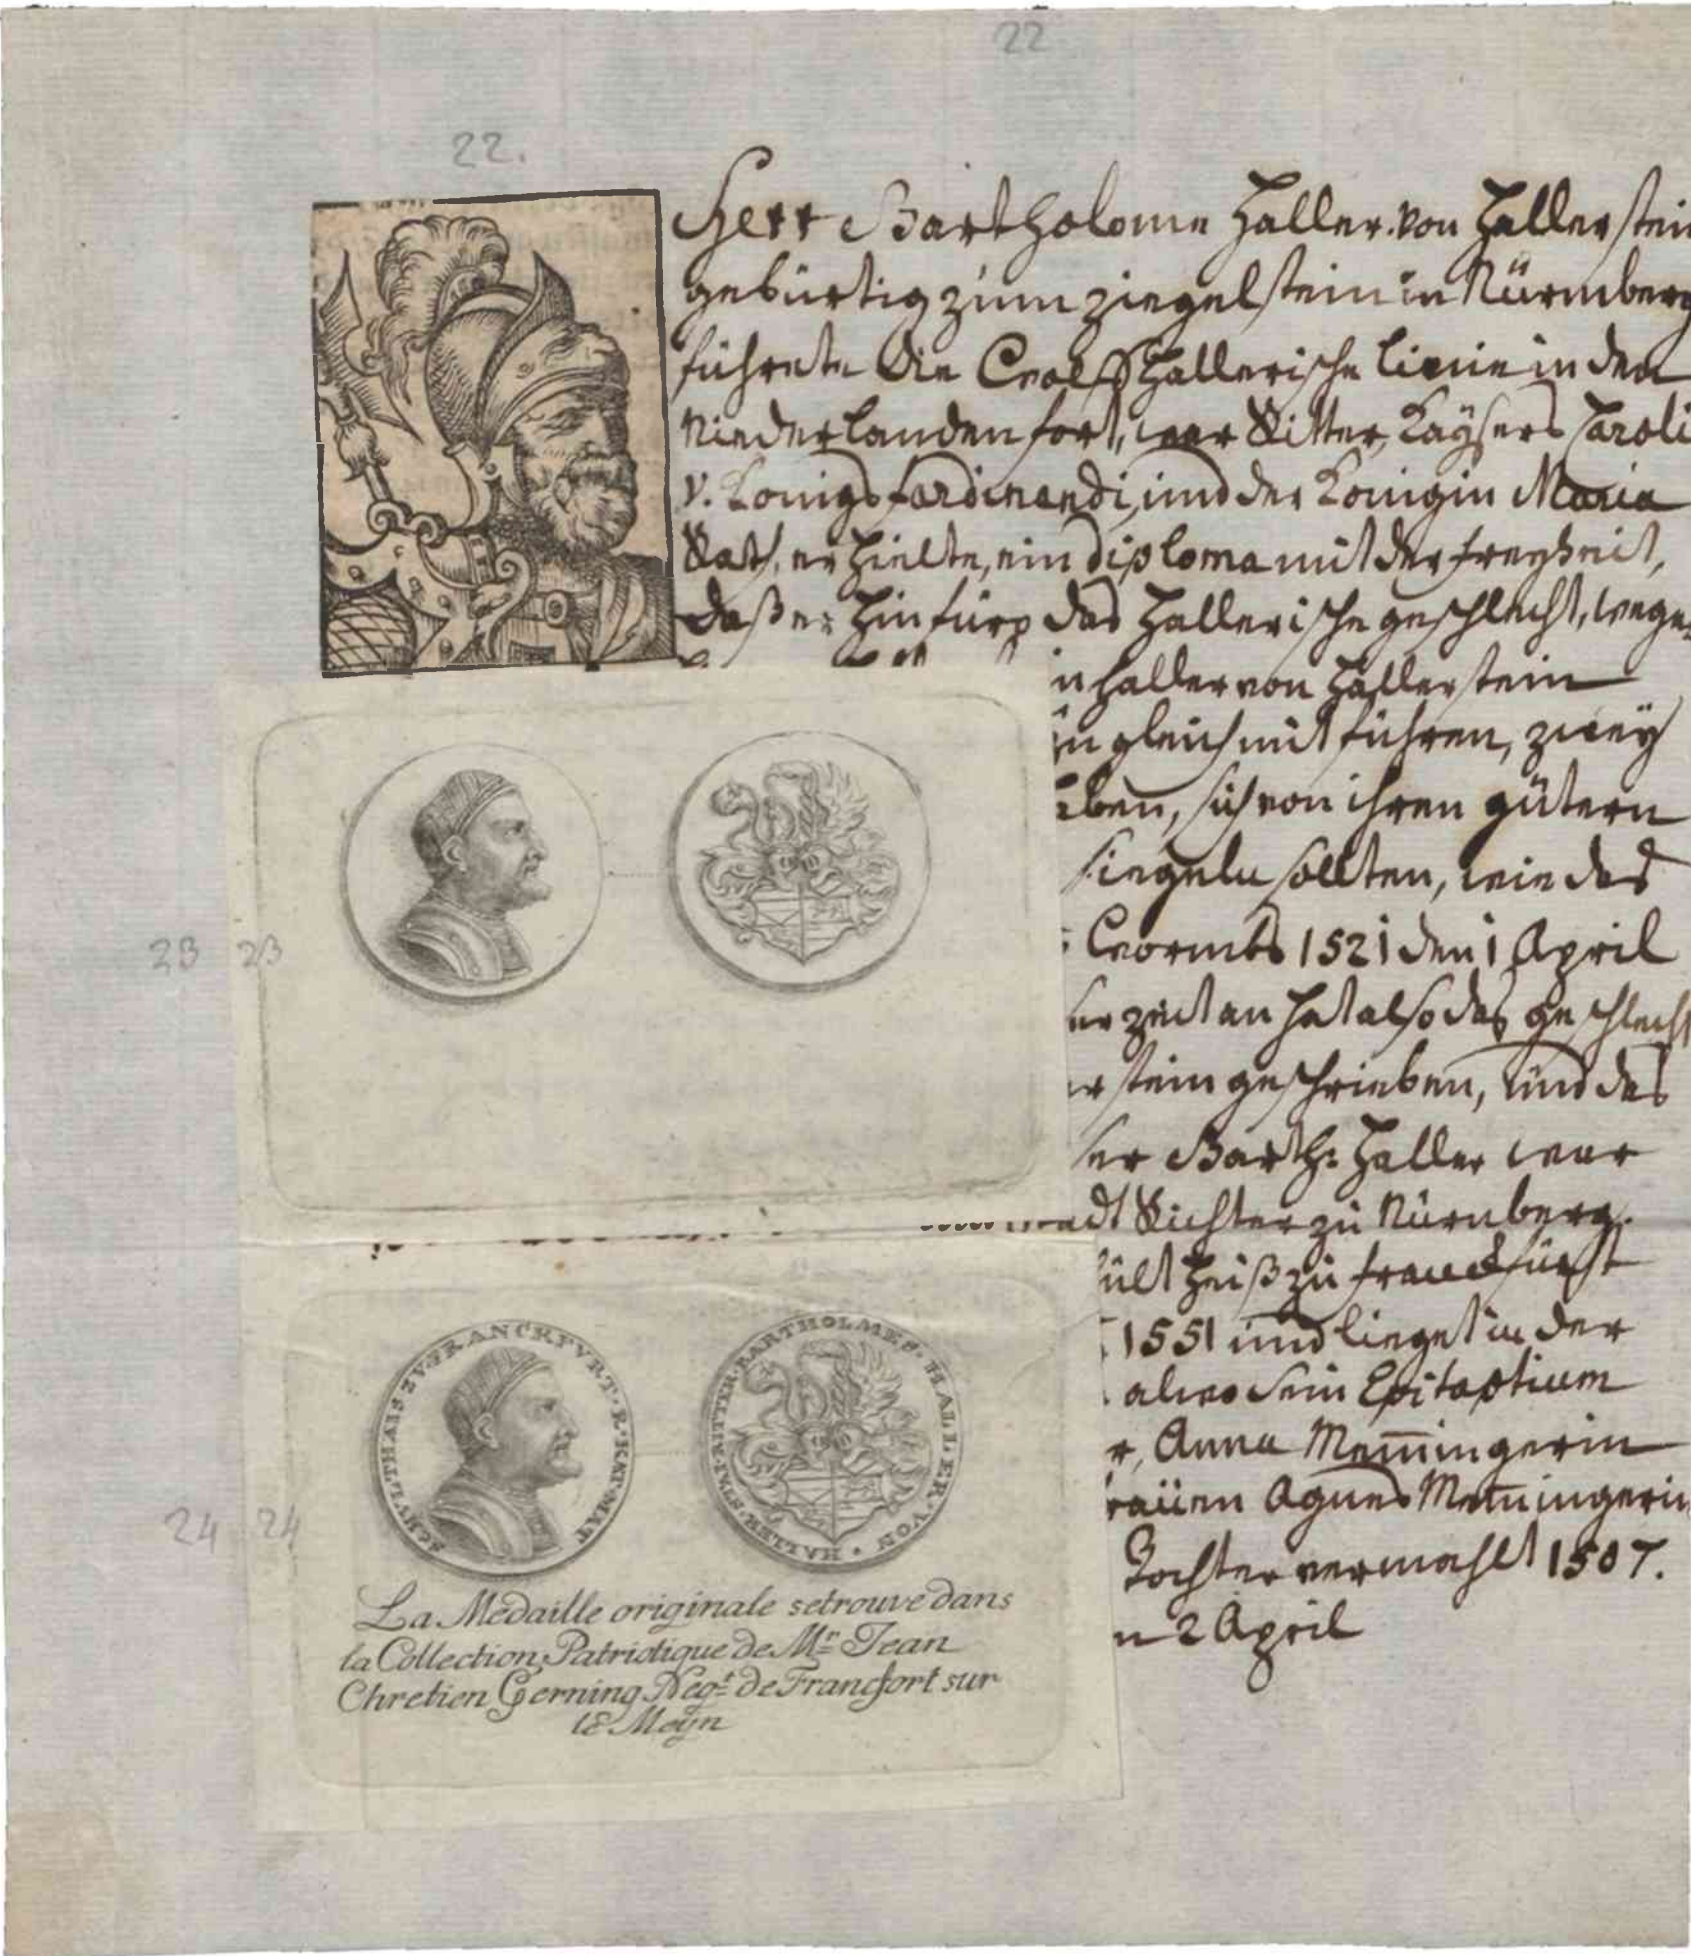 22
22.
Herr Bartholome Haller von Hallerstein
gebürtig zum ziegelstein in Nürmberg
führete die Hallerische Linie in den
Niederlanden fort, war Ritter, Kaÿsers Caroli
V. Königs Ferdinandi, und der Königin Maria
Rath, erhielte, ein diploma mit der freyheit,
daß er hinfüro das Hallerische geschlecht, wege
haller von Hallerstein
gleich mit führen, zweÿ
ben, sich von ihren gütern
siegeln sollten, wie das
Wormbs 1521 den 1 April
er zeit an hat also das geschlecht
erstein geschrieben, und das
ser Barth: Haller war
adt Richter zu Nürnberg.
ült heiß zu franckfürt
1551 und lieget in der
alwo sein Epitaphium
r, Anna Mem̅ingerin
rauen Agnes Mem̅ingerin
Tochter vermahlt 1507.
n 2 April
23 23
SCHVLTHAIS·ZV·FRANCKFVRT·R·KAI·MAT
BARTHOLMES·HALLER·VON·HALLERSTAI·RITTER
24 24
La Medaille originale se trouve dans
la Collection Patriotique de Mr. Jean
Chretien Gerning Negt. de Francfort sur
le Meyn